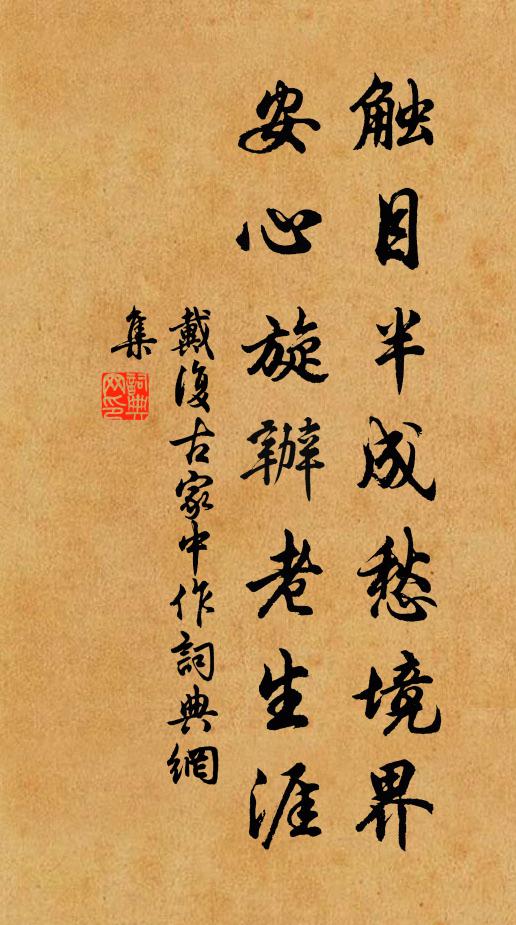 触目半成愁境界
安心旋辦老生涯
戴復古家中作詞典網
集
詞典
网印